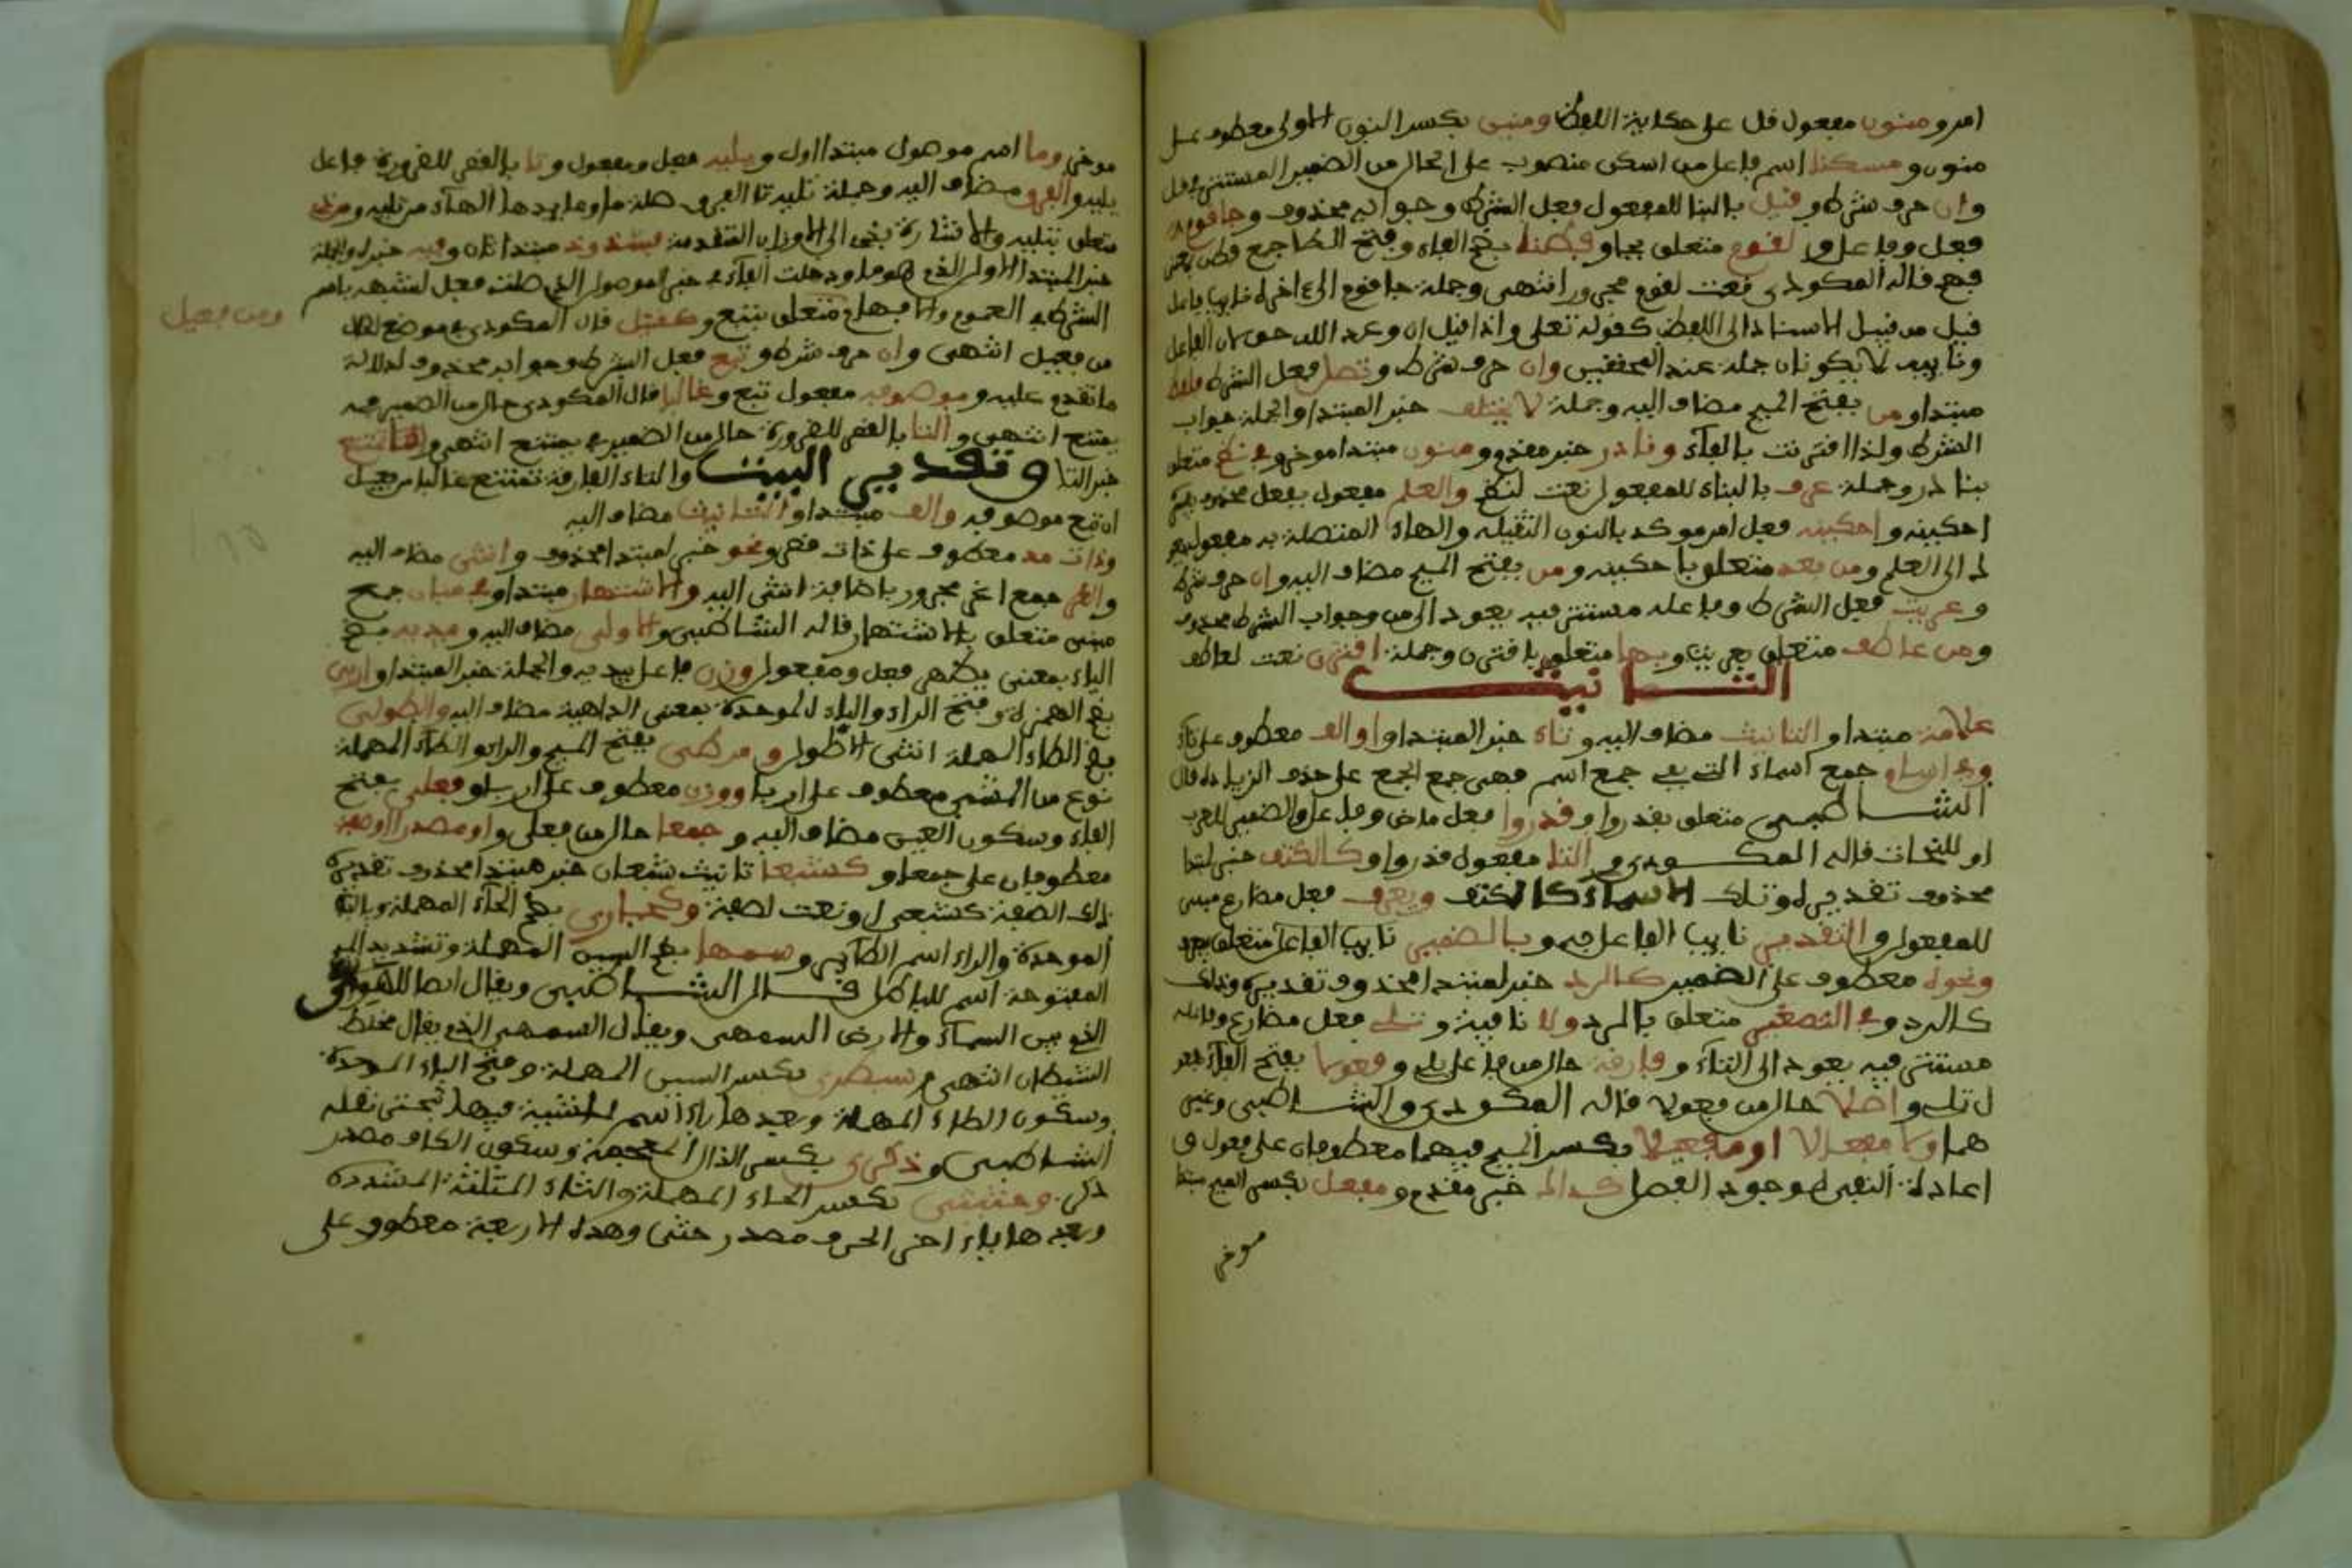 امر ومنون مفعول قل على حكاية اللفظ ومنين بكسر النون الاولى معطوف على
منون ومسكنا اسم فاعل من اسكن منصوب على الحال من الضمير المستتر في قل
وان حرف شرط وقيل بالبنا للمفعول فعل الشرط وجوابه محذوف وجا قوم
فعل وفاعل ولقوم متعلق بجا وفطنا بضم الفاء وفتح الطا جمع فطن
فهم قاله المكودي نعت لقوم مجرور انتهى وجملة جا قوم الى اخره نايب فاعل
قيل من قبيل الاسناد الى اللفظ كقوله تعلى واذا قيل ان وعد الله حق لان الفاعل
ونايبه لا يكونان جملة عند المحققين وان حرف شرط وتصل فعل الشرط فلفظ
مبتدا ومن بفتح الميم مضاف اليه وجملة لا يختلف خبر المبتدا والجملة جواب
الشرط ولذا اقترنت بالفاء ونادر خبر مقدم ومنون مبتدا موخر وفي نظم متعلق
بنادر وجملة عرف بالبناء للمفعول نعت لنظم والعلم مفعول بفعل محذوف يفسره
احكينه واحكينه فعل امر موكد بالنون الثقيلة والهاء المتصلة به مفعول
له الى العلم ومن بعد متعلق باحكينه ومن بفتح الميم مضاف اليه وان حرف شرط
وعريت فعل الشرط وفاعله مستتر فيه يعود الى من وجواب الشرط محذوف
ومن عاطف متعلق بعريت وبها متعلق باقترن وجملة اقترن نعت لعاطف
التانيث
علامة مبتدا والتانيث مضاف اليه وتاء خبر المبتدا واو الف معطوف على تاء
وفي اسام جمع اسماء التي هي جمع اسم فهي جمع الجمع على حذف الزيادة قال
الشاطبي متعلق بقدروا وقدروا فعل ماض وفاعل والضمير للعرب
او للنحات قاله المكودي والتا مفعول قدروا وكالكتف خبر لمبتدا
محذوف تقديره وتلك الاسماء كالكتف ويعرف فعل مضارع مبني
للمفعول والتقدير نايب الفاعل فيه وبالضمير متعلق بيعرف
ونحوه معطوف على الضمير كالرد خبر لمبتدا محذوف تقديره وذلك
كالرد وفي التصغير متعلق بالرد ولا نافية وتلي فعل مضارع وفاعله
مستتر فيه يعود الى التاء وفارقة حال من فاعل تلي وفعولا بفتح الفاء مفعول
لتلي واصلا حال من فعولا قاله المكودي والشاطبي وغير
هما ولا مفعالا او مفعيلا بكسر الميم فيهما معطوفان على فعولا و
اعادة النفي لوجود الفصل كذاك خبر مقدم ومفعل بكسر الميم مبتدا
موخر
موخر وما اسم موصول مبتدا اول ويليه فعل ومفعول وتا بالقصر للضرورة فاعل
يليه والفرق مضاف اليه وجملة تليه تا الفرق صلة ما وعايدها الهاء من تليه ومن ذي
متعلق بتليه والاشارة بذي الى الاوزان المتقدمة فشذوذ مبتدا ثان وفيه خبره والجملة
خبر المبتدا الاول الذي هو ما ودخلت الفاء في خبر الموصول الذي صلته فعل لشبهه باسم
الشرط في العموم والابهام ومن فعيل متعلق بتتبع وكقتيل قال المكودي في موضع الحال
من فعيل انتهى وان حرف شرط وتبع فعل الشرط وجوابه محذوف لدلالة
ما تقدم عليه وموصوفه مفعول تبع وغالبا قال المكودي حال من الضمير في
يمتنع انتهى والتا بالقصر للضرورة حال من الضمير في يمتنع انتهى والتا تمتنع
خبر التا وتقدير البيت والتاء الفارقة تمتنع غالبا من فعيل
ان تبع موصوفه والف مبتدا والتانيث مضاف اليه
وذات مد معطوف على ذات قصر ونحو خبر لمبتدا محذوف وانثى مضاف اليه
والغر جمع اغر مجرور باضافة انثى اليه والاشتهار مبتدا وفي مبان جمع
مبنى متعلق بالاشتهار قاله الشاطبي والاولى مضاف اليه ويبديه بضم
الياء بمعنى يظهر فعل ومفعول وزن فاعل يبديه والجملة خبر المبتدا واربى
بضم الهمزة وفتح الراء والباء الموحدة بمعنى الداهية مضاف اليه والطولى
بضم الطاء المهملة انثى الاطول ومرطى بفتح الميم والراء والطاء المهملة
نوع من المشي معطوف على اربا ووزن معطوف على اربى وفعلى بفتح
الفاء وسكون العين مضاف اليه وجمعا حال من فعلى واو مصدرا او صفة
معطوفان على جمعا وكشبعا تانيث شبعان خبر مبتدا محذوف تقديره
ذلك الصفة كشبعى او نعت لصفة وكحبارى بضم الحاء المهملة وبالباء
الموحدة والراء اسم الطاير وسمهى بضم السين المهملة وتشديد الميم
المفتوحة اسم للباطل قال الشاطبي ويقال ايضا للهواء
الذي بين السماء والارض السمهى ويقال السمهى الذي يقال مخاط
الشيطان انتهى وسبطرى بكسر السين المهملة وفتح الباء الموحدة
وسكون الطاء المهملة وبعدها راء اسم لمشية فيها تبختر نقله
الشاطبي وذكرى بكسر الذال المعجمة وسكون الكاف مصدر
ذكر وحثيثى بكسر الحاء المهملة والثاء المثلثة المشددة
وبعدها ياء اخر الحرف مصدر حثى وهذه الاربعة معطوف على
ومن فعيل